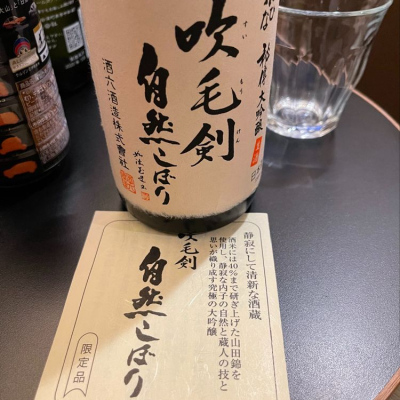 大吟醸
吹毛剣
すいもうけん
自然しぼり
酒六酒造株式會社
静寂にして清新な酒蔵
酒米には40%まで研ぎ上げた山田錦を
使用し、静寂な内子の自然と蔵人の技と
思いが織り成す究極の大吟醸
吹毛剣
自然しぼり
限定品